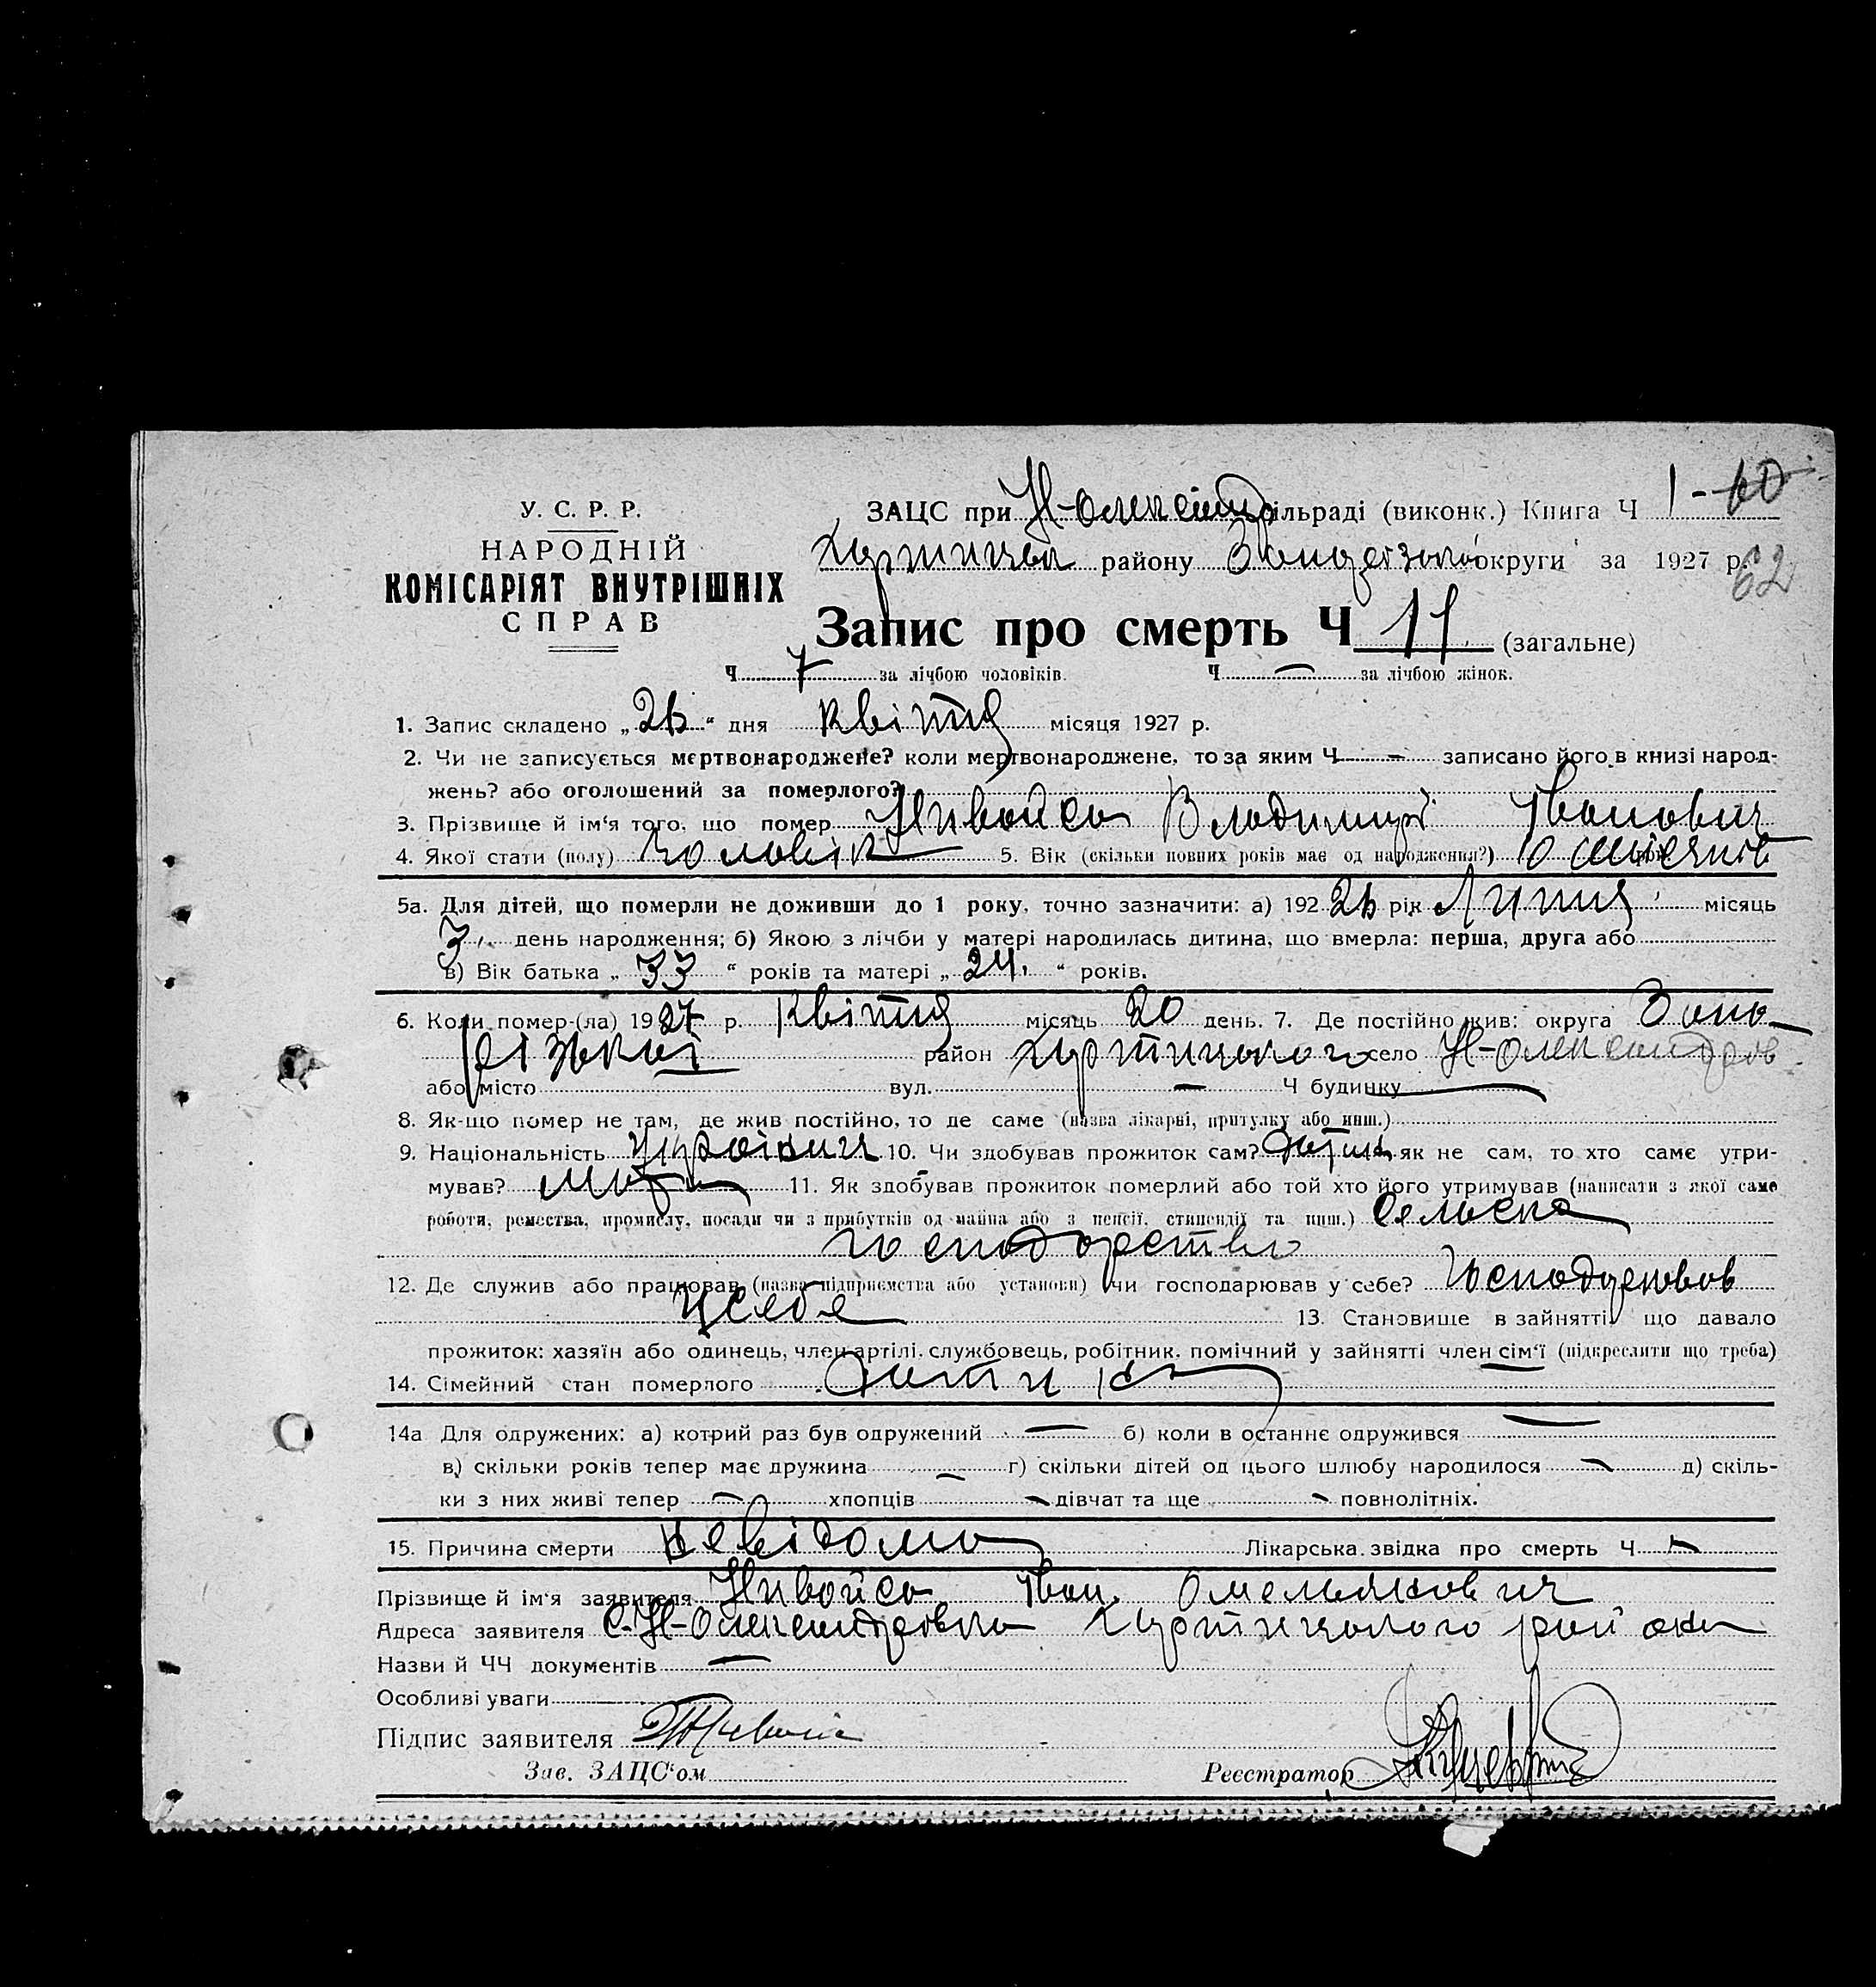 У. С. Р. Р.
НАРОДНІЙ
КОМІСАРІЯТ ВНУТРІШНІХ
СПРАВ
ЗАЦС при Н-Олександ сільраді (виконк.) Книга Ч 1-60
району округи за 1927 р. 62
Запис про смерть Ч 11 (загальне)
Ч 7 за лічбою чоловіків. Ч — за лічбою жінок.
1. Запис складено „ “ дня квітня місяця 1927 р.
2. Чи не записується мертвонароджене? коли мертвонароджене, то за яким Ч — записано його в книзі народ-
жень? або оголошений за померлого?
3. Прізвище й ім‘я того, що помер Володимир Іванович
4. Якої стати (полу) чоловік 5. Вік (скільки повних років має од народження?) 10 місяців
5а. Для дітей, що померли не доживши до 1 року, точно зазначити: а) 192 26 рік Липня місяць
3 день народження; б) Якою з лічби у матері народилась дитина, що вмерла: перша, друга або
в) Вік батька „ 33 “ років та матері „ 24 “ років.
6. Коли помер-(ла) 1927 р. квітня місяць 20 день. 7. Де постійно жив: округа Запо-
різької район Хортицького село Н-Олександров
або місто вул. — Ч будинку —
8. Як-що помер не там, де жив постійно, то де саме (назва лікарні, притулку або инш.)
9. Національність 10. Чи здобував прожиток сам? як не сам, то хто саме утри-
мував? 11. Як здобував прожиток померлий або той хто його утримував (написати з якої саме
роботи, ремества, промислу, посади чи з прибутків од майна або з пенсії, стипендії та инш.) Сельска
господарство
12. Де служив або працював (назва підприємства або установи) чи господарював у себе? господарював
у себе 13. Становище в зайнятті, що давало
прожиток: хазяїн або одинець, член артілі, службовець, робітник, помічний у зайнятті член сім‘ї (підкреслити що треба)
14. Сімейний стан померлого
14а Для одружених: а) котрий раз був одружений — б) коли в останнє одружився —
в) скільки років тепер має дружина — г) скільки дітей од цього шлюбу народилося — д) скіль-
ки з них живі тепер — хлопців — дівчат та ще — повнолітніх.
15. Причина смерти невідома Лікарська звідка про смерть Ч —
Прізвище й ім‘я заявителя Іван Омельянович
Адреса заявителя с. Н-Олександровка Хортицького району
Назви й ЧЧ документів —
Особливі уваги
Підпис заявителя
Зав. ЗАЦС‘ом
Реєстратор